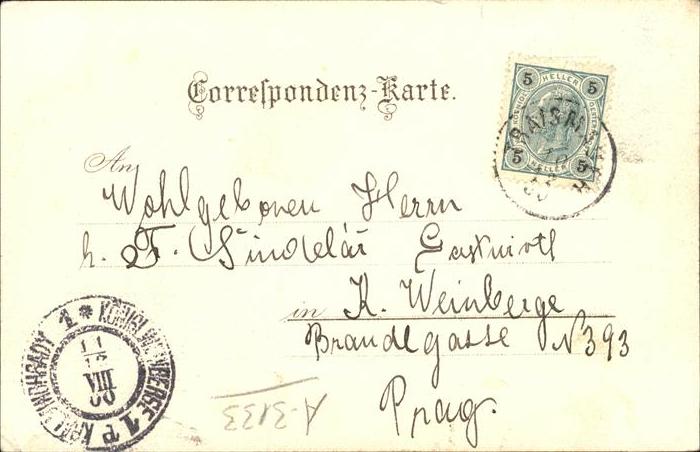 Correspondenz-Karte.
5 HELLER 5
5 HELLER 5
TRAISMAUER
An
Wohlgeboren Herrn
h. F. Šindelář Gastwirth
in K. Weinberge
Brandlgasse N 393
Prag.
A-3133
1 * KÖNIGL. WEINBERGE 1
KRÁL. VINOHRADY
11
12
VIII
00